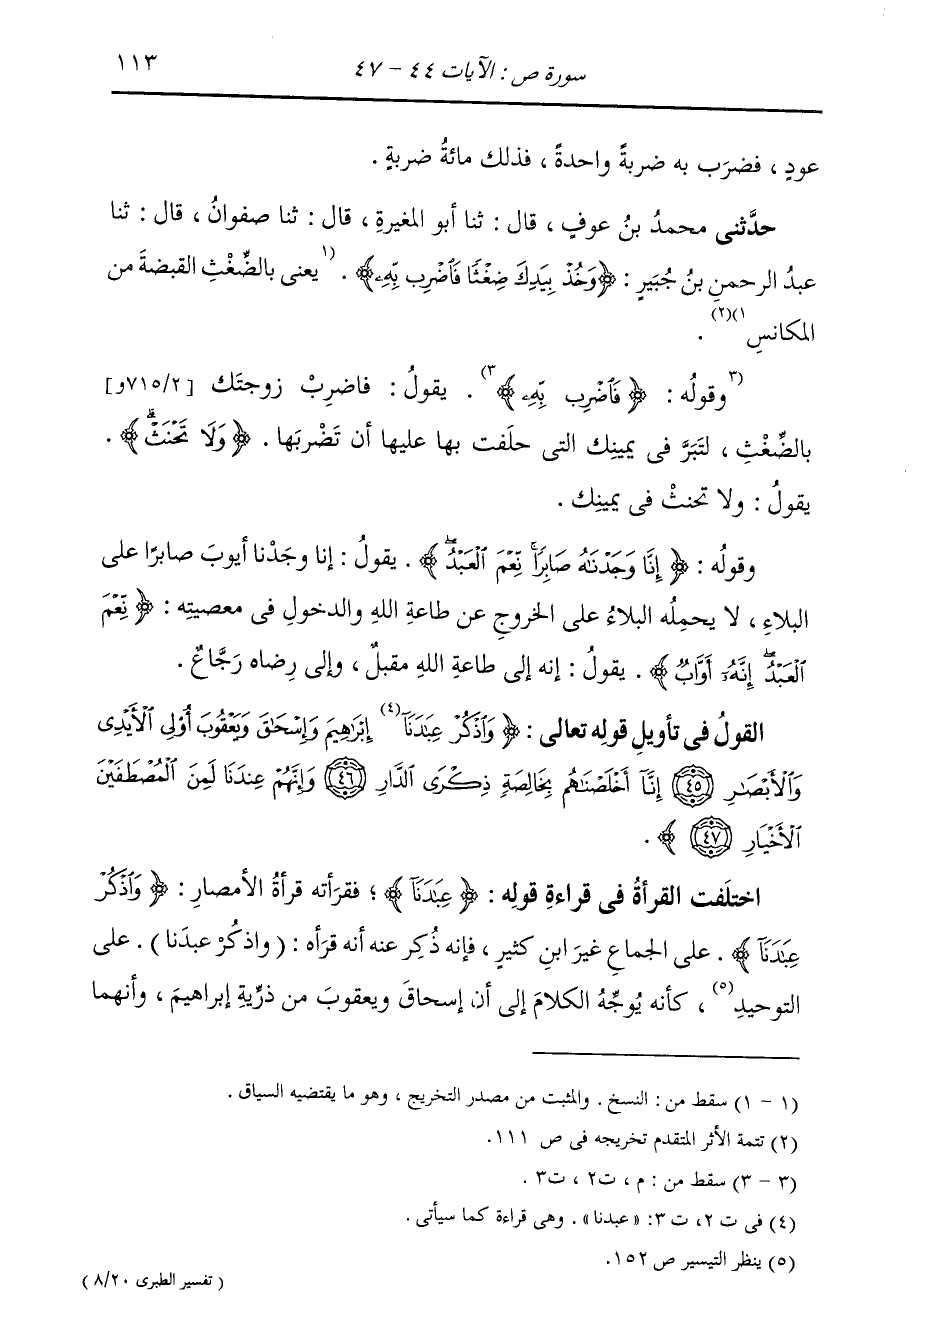 سورة ص : الآيات ٤٤ - ٤٧ ١١٣
عودٍ ، فضرَب به ضربةً واحدةً ، فذلك مائةُ ضربةٍ .
حدَّثنى محمدُ بنُ عوفٍ ، قال : ثنا أبو المغيرةِ ، قال : ثنا صفوانُ ، قال : ثنا
عبدُ الرحمنِ بنُ جُبَيرٍ : ﴿وَخُذْ بِيَدِكَ ضِغْثًا فَاضْرِب بِّهِۦ﴾ . (١ يعنى بالضِّغْثِ القبضةَ من
المكانسِ ١)(٢) .
(٣ وقولُه : ﴿ فَاضْرِب بِّهِۦ ﴾ ٣) . يقولُ : فاضرِبْ زوجتَك [٧١٥/٢و]
بالضِّغْثِ ، لتَبَرَّ فى يمينِك التى حلَفت بها عليها أن تَضْرِبَها . ﴿ وَلَا تَحْنَثْ ﴾ .
يقولُ : ولا تحنثْ فى يمينِك .
وقولُه : ﴿ إِنَّا وَجَدْنَاهُ صَابِرًا نِّعْمَ الْعَبْدُ ﴾ . يقولُ : إنا وجَدْنا أيوبَ صابرًا على
البلاءِ ، لا يحمِلُه البلاءُ على الخروجِ عن طاعةِ اللهِ والدخولِ فى معصيتِه : ﴿ نِّعْمَ
الْعَبْدُ إِنَّهُۥٓ أَوَّابٌ ﴾ . يقولُ : إنه إلى طاعةِ اللهِ مقبلٌ ، وإلى رِضاه رَجَّاعٌ .
القولُ فى تأويلِ قولِه تعالى : ﴿ وَاذْكُرْ عِبَادَنَا (٤) إِبْرَاهِيمَ وَإِسْحَاقَ وَيَعْقُوبَ أُوْلِى الْأَيْدِى
وَالْأَبْصَارِ ﴿٤٥﴾ إِنَّا أَخْلَصْنَاهُم بِخَالِصَةٍ ذِكْرَى الدَّارِ ﴿٤٦﴾ وَإِنَّهُمْ عِندَنَا لَمِنَ الْمُصْطَفَيْنَ
الْأَخْيَارِ ﴿٤٧﴾ ﴾ .
اختلَفت القرأةُ فى قراءةِ قولِه : ﴿ عِبَادَنَا ﴾ ؛ فقرَأته قرأةُ الأمصارِ : ﴿ وَاذْكُرْ
عِبَادَنَا ﴾ . على الجماعِ غيرَ ابنِ كثيرٍ ، فإنه ذُكِر عنه أنه قرَأه : ( واذكُرْ عبدَنا ) . على
التوحيدِ (٥) ، كأنه يُوجِّهُ الكلامَ إلى أن إسحاقَ ويعقوبَ من ذرِّيةِ إبراهيمَ ، وأنهما
(١ - ١) سقط من : النسخ . والمثبت من مصدر التخريج ، وهو ما يقتضيه السياق .
(٢) تتمة الأثر المتقدم تخريجه فى ص ١١١.
(٣ - ٣) سقط من : م ، ت٢ ، ت٣ .
(٤) فى ت ٢، ت ٣: «عبدنا» . وهى قراءة كما سيأتى .
(٥) ينظر التيسير ص ١٥٢.
( تفسير الطبرى ٨/٢٠ )